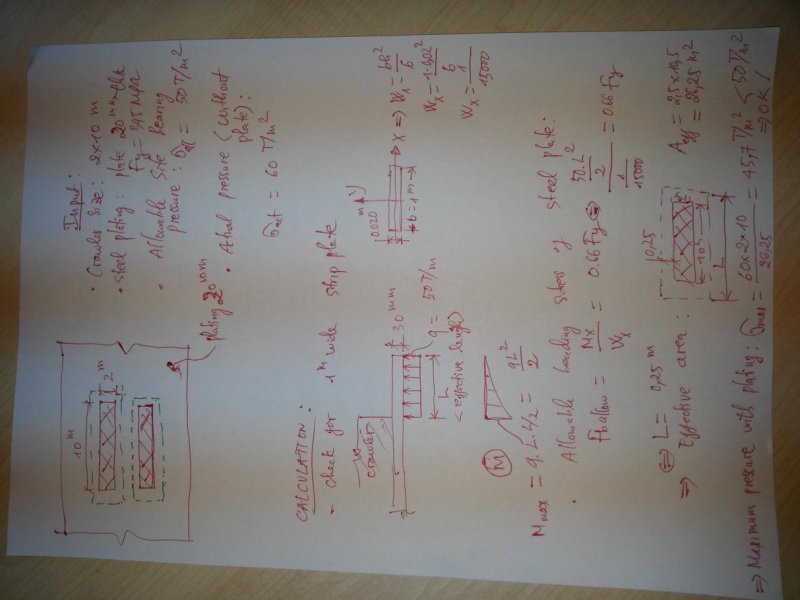 Input:
• Crawler size: 2x10 m
• Steel plating: plate 20 mm thk
Fy = 345 MPa
• Allowable site bearing
pressure: σall = 50 T/m²
• Actual pressure (without
plate):
σact = 60 T/m²
10 m
2 m
plating 20 mm
CALCULATION:
- Check for 1m wide strip plate
crawler
30 mm
q = 50 T/m
L
(effective length)
0.020 m
y
b = 1 m
X => Wx = bh²/6
Wx = 1·0.02²/6
Wx = 1/15000
M
Mmax = q·L·L/2 = qL²/2
• Allowable bending stress of steel plate:
Fb allow = Mx/Wx = 0.66 Fy <=> (50·L²/2)/(1/15000) = 0.66 Fy
<=> L = 0,25 m
=> Effective area:
0,25
10m
L
Aeff = 2,5x10,5
= 26,25 m²
=> Maximum pressure with plating: σmax = 60x2x10/26,25 = 45,7 T/m² < 50 T/m²
=> OK!